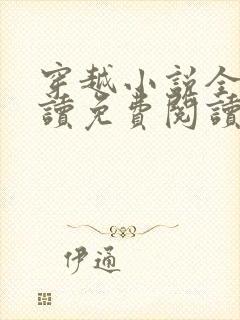 穿越小説全
讀免費閱讀
伊通